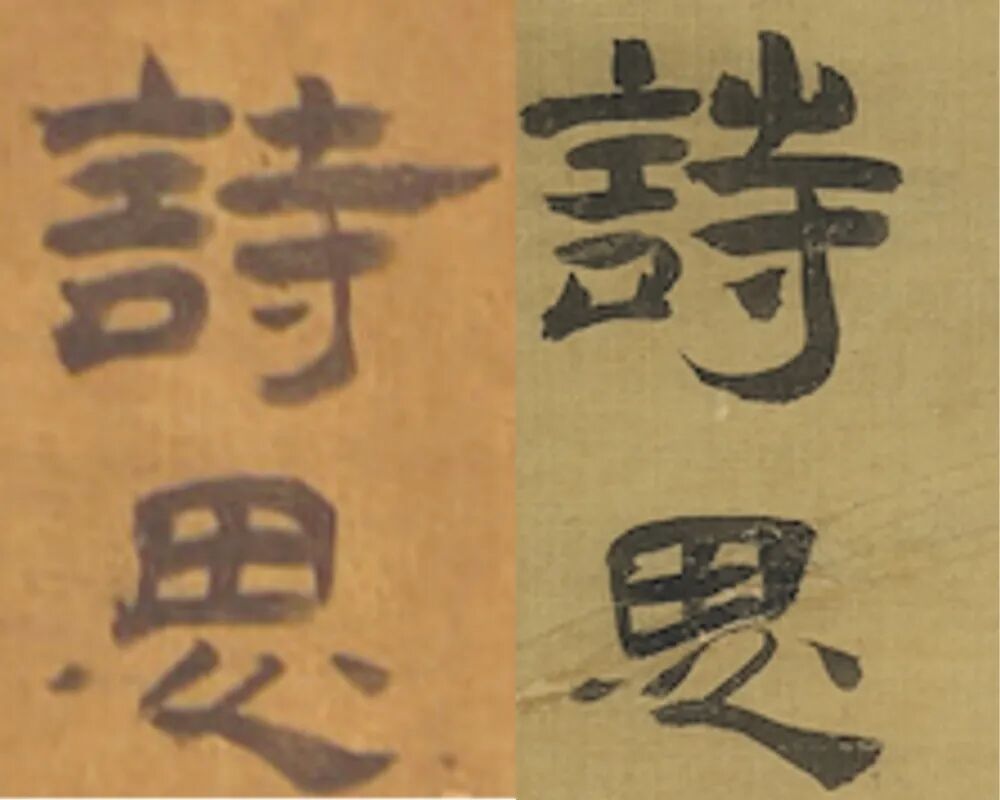 詩思
詩思